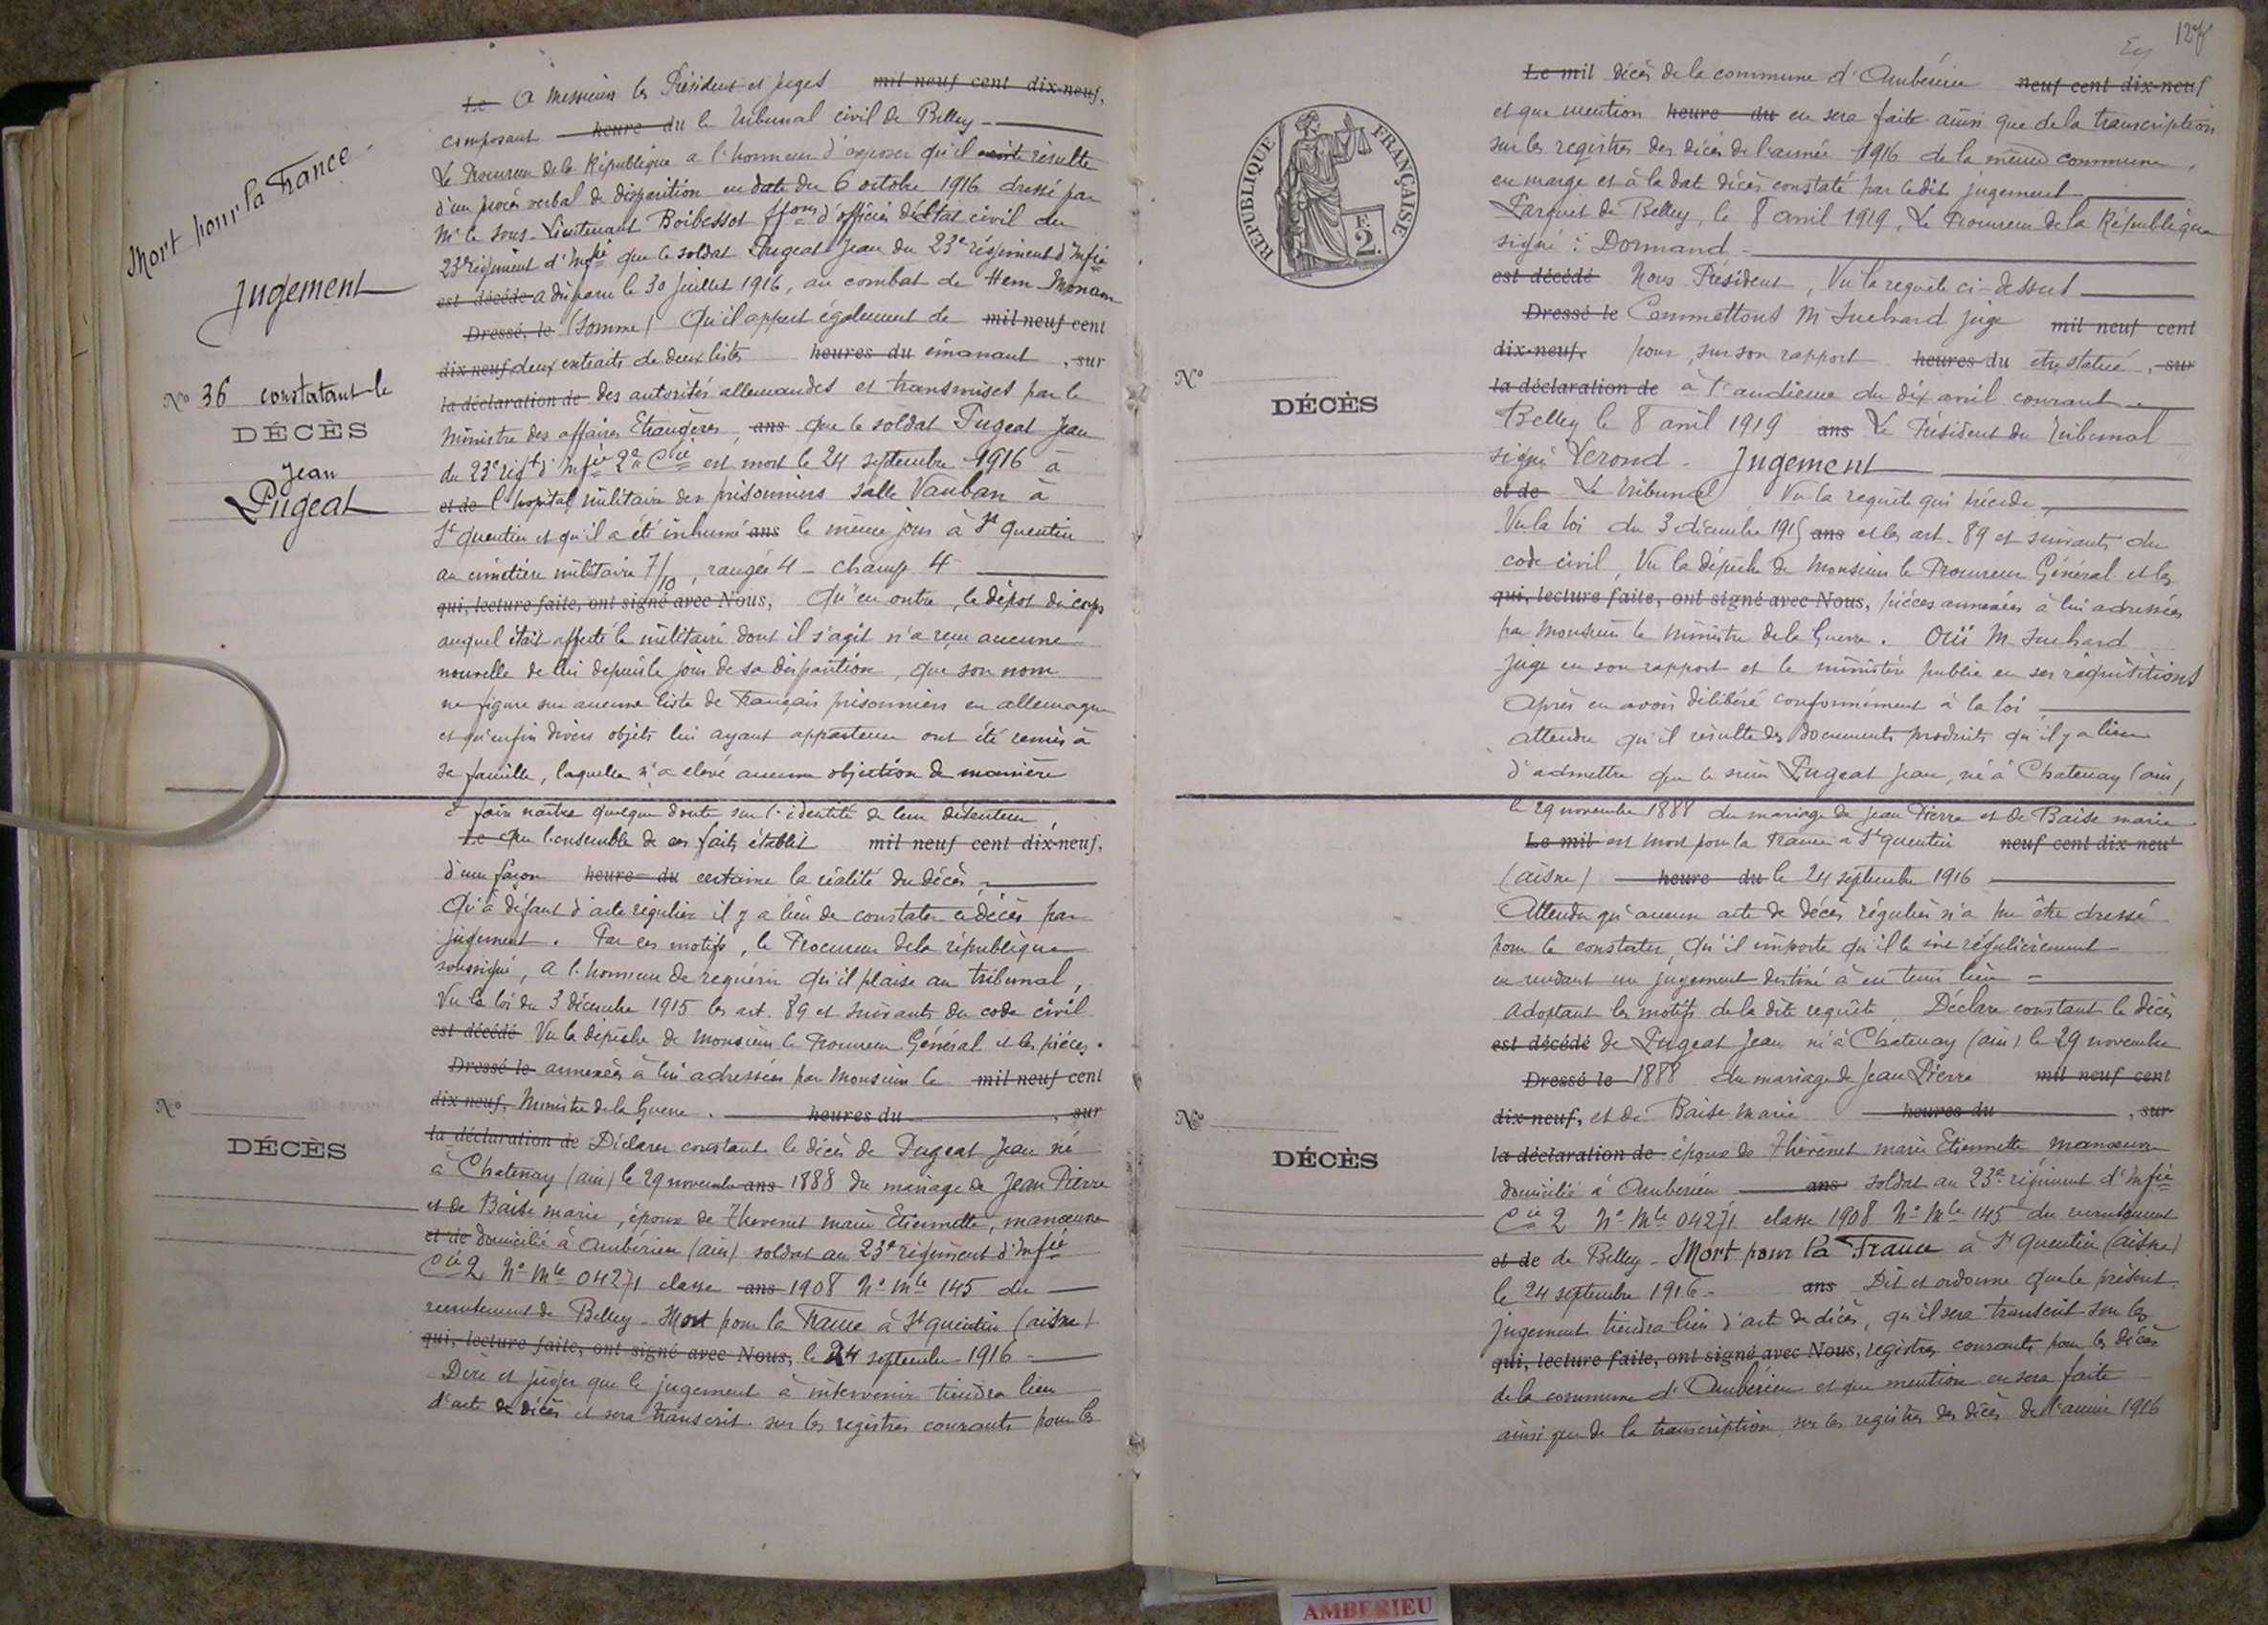 Mort pour la France
Jugement
N° 36 constatant le
DÉCÈS
Jean
Pugeat
Le A Messieurs les Président et juges mil neuf cent dix-neuf,
composant heure du le Tribunal civil de Belley
Le Procureur de la République a l'honneur d'exposer qu'il résulte
d'un procès verbal de disparition en date du 6 octobre 1916 dressé par
Mr le sous-Lieutenant Boibessot ffons d'officier d'état civil du
23e régiment d'Infie que le soldat Pugeat Jean du 23e régiment d'Infie
est décédé a disparu le 30 juillet 1916, au combat de Hem-Monacu
Dressé, le (Somme) Qu'il appert également de mil neuf cent
dix neuf, deux extraits de deux listes heures du émanant , sur
la déclaration de des autorités allemandes et transmises par le
Ministre des affaires Etrangères, ans que le soldat Pugeat Jean
du 23e rigt d'Infie 2e Cie est mort le 24 septembre 1916 à
et de l'hopital militaire des prisonniers salle Vauban à
St Quentin et qu'il a été inhumé ans le même jour à St Quentin
au cimetière militaire 7/10, rangée 4 - champ 4
qui, lecture faite, ont signé avec Nous, Qu'en outre, le dépot du corps
auquel était affecté le militaire dont il s'agit n'a reçu aucune
nouvelle de lui depuis le jour de sa disparition, que son nom
ne figure sur aucune liste de Français prisonniers en allemagne
et qu'enfin divers objets lui ayant appartenu ont été remis à
sa famille, laquelle n'a elevé aucune objection de manière
à faire naître quelque doute sur l'identité de leur détenteur,
Le Que l'ensemble de ces faits établit mil neuf cent dix-neuf,
d'une façon heure du certaine la réalité du décès,
Qu'à défaut d'acte régulier il y a lieu de constater ce décès par
jugement. Par ces motifs, le Procureur de la république
soussigné, a l'honneur de requérir qu'il plaise au tribunal,
Vu la loi du 3 décembre 1915 les art. 89 et suivants du code civil
est décédé Vu la dépêche de Monsieur le Procureur Général et les pièces
Dressé le annexées à lui adressées par Monsieur le mil neuf cent
dix neuf, Ministre de la Guerre. heures du , sur
la déclaration de Déclarer constant le décès de Pugeat Jean né
à Chatenay (ain) le 29 novembre ans 1888 du mariage de Jean Pierre
et de Baise marie, époux de Thevenet marie Etiennette, manœuvre
et de domicilié à Ambérieu (ain) soldat au 23e régiment d'Infie
Cie 2 N° Mle 04271 classe ans 1908 N° mle 145 du
recrutement de Belley - Mort pour la France à St Quentin (aisne)
qui, lecture faite, ont signé avec Nous, le 24 septembre 1916
Dire et juger que le jugement à intervenir tiendra lieu
d'acte de décès et sera transcrit sur les registres courants pour les
N°
DÉCÈS
127
RÉPUBLIQUE FRANÇAISE
F.
2.
Le mil décès de la commune d'Ambérieu neuf cent dix-neuf
et que mention heure du en sera faite ainsi que de la transcription
sur les registres des décès de l'année 1916 de la même commune,
en marge et à la date décès constaté par ledit jugement
Parquet de Belley, le 8 avril 1919, Le Procureur de la République
signé : Dormand
est décédé Nous Président, Vu la requête ci-dessus
Dressé le Commettons Mr Suchard juge mil neuf cent
dix-neuf, pour, sur son rapport heures du être statué , sur
la déclaration de à l'audience du dix avril courant
Belley le 8 avril 1919 ans Le Président du Tribunal
signé Verond. Jugement
et de Le Tribunal Vu la requête qui précède,
Vu la loi du 3 décembre 1915 ans et les art. 89 et suivants du
code civil, Vu la dépêche de Monsieur le Procureur Général et les
qui, lecture faite, ont signé avec Nous, pièces annexées à lui adressées
par Monsieur le Ministre de la Guerre. Ouï M. Suchard
juge en son rapport et le ministère public en ses réquisitions
Après en avoir délibéré conformément à la loi
Attendu qu'il résulte des documents produits qu'il y a lieu
d'admettre que le sieur Pugeat Jean, né à Chatenay (ain)
le 29 novembre 1888 du mariage de Jean Pierre et de Baise marie
Le mil est mort pour la France à St Quentin neuf cent dix-neuf
(aisne) heure du le 24 septembre 1916
Attendu qu'aucun acte de décès régulier n'a pu être dressé
pour le constater, qu'il importe qu'il le soit régulièrement
en rendant un jugement destiné à en tenir lieu
adoptant les motifs de la dite requête. Déclare constant le décès
est décédé de Pugeat Jean né à Chatenay (ain) le 29 novembre
Dressé le 1888 du mariage de Jean Pierre mil neuf cent
dix-neuf, et de Baise Marie heures du , sur
la déclaration de époux de Thévenet marie Etiennette manœuvre
domicilié à Ambérieu ans soldat au 23e régiment d'Infie
Cie 2 N° Mle 04271 classe 1908 N° Mle 145 du recrutement
et de de Belley - Mort pour la France à St Quentin (aisne)
le 24 septembre 1916 - ans Dit et ordonne que le présent
jugement tiendra lieu d'acte de décès, qu'il sera transcrit sur les
qui, lecture faite, ont signé avec Nous, registres courants pour les décès
de la commune d'Ambérieu et que mention en sera faite
ainsi que de la transcription sur les registres des décès de l'année 1916
N°
DÉCÈS
N°
DÉCÈS
AMBERIEU